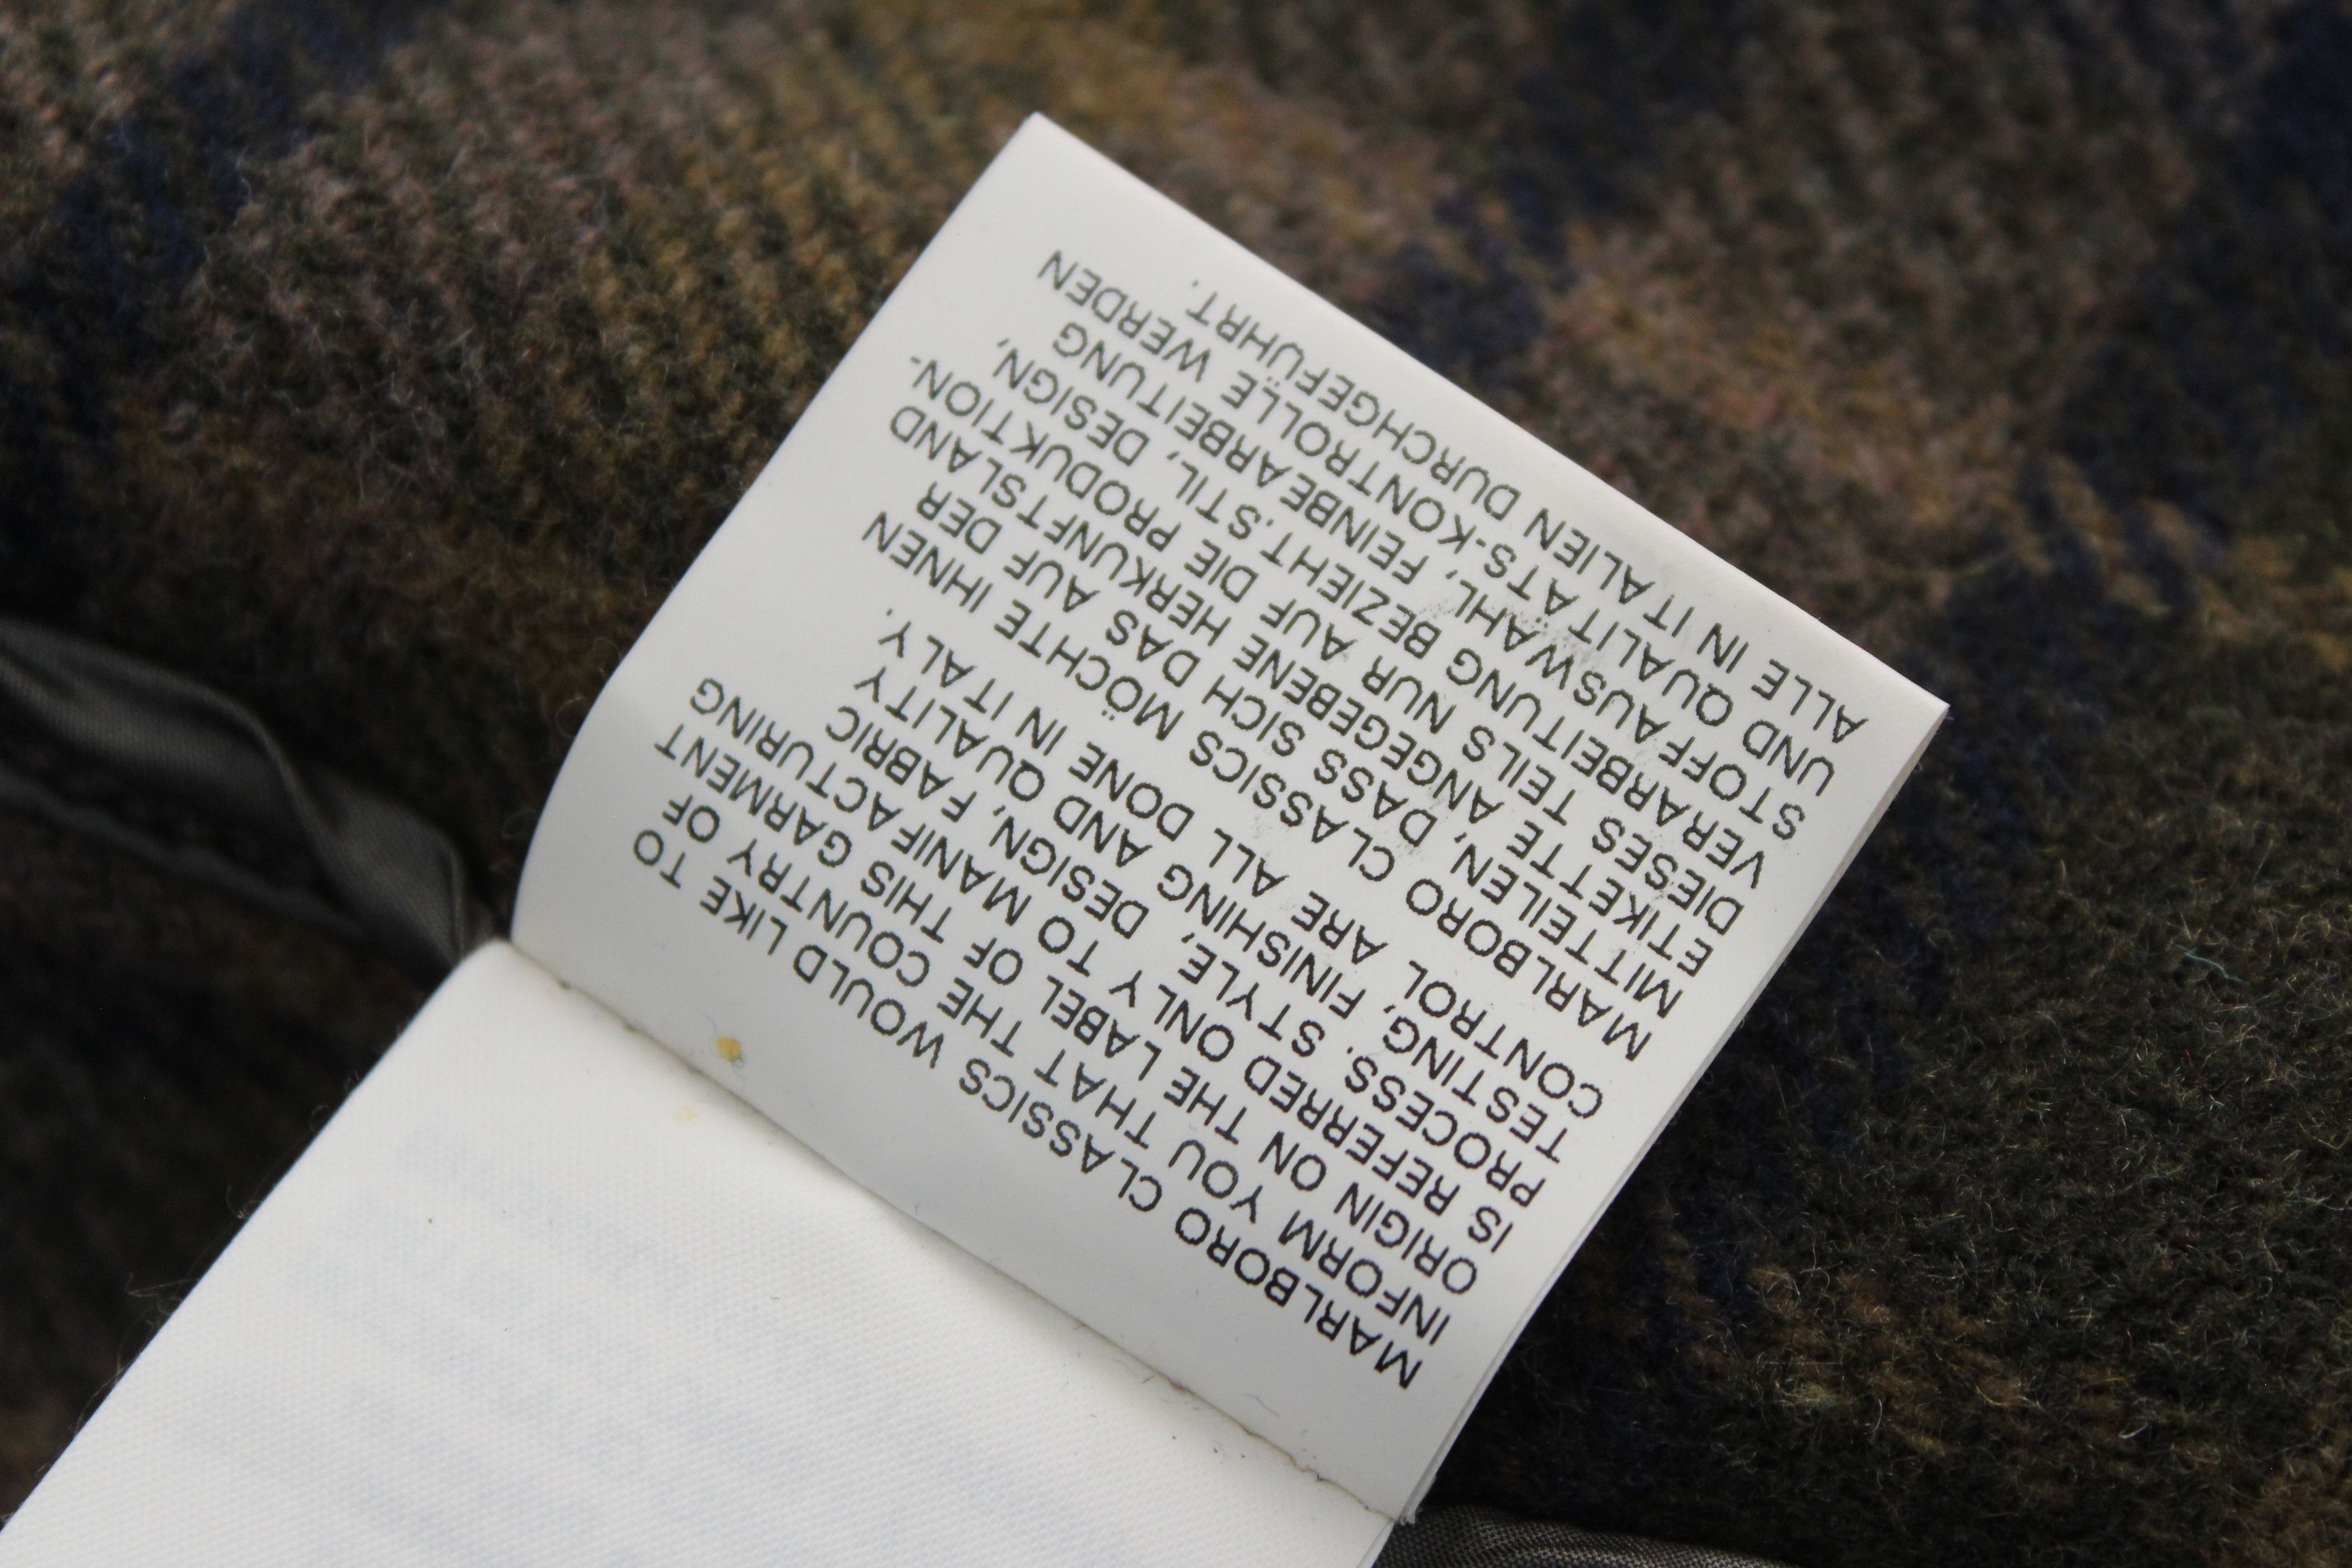 MARLBORO CLASSICS WOULD LIKE TO
INFORM YOU THAT THE COUNTRY OF
ORIGIN ON THE LABEL OF THIS GARMENT
IS REFERRED ONLY TO MANIFACTURING
PROCESS. STYLE, DESIGN, FABRIC
TESTING, FINISHING AND QUALITY
CONTROL ARE ALL DONE IN ITALY.
MARLBORO CLASSICS MÖCHTE IHNEN
MITTEILEN, DASS SICH DAS AUF DER
ETIKETTE ANGEGEBENE HERKUNFTSLAND
DIESES TEILS NUR AUF DIE PRODUKTION-
VERARBEITUNG BEZIEHT.STIL, DESIGN,
STOFFAUSWAHL, FEINBEARBEITUNG
UND QUALITÄTS-KONTROLLE WERDEN
ALLE IN ITALIEN DURCHGEFÜHRT.